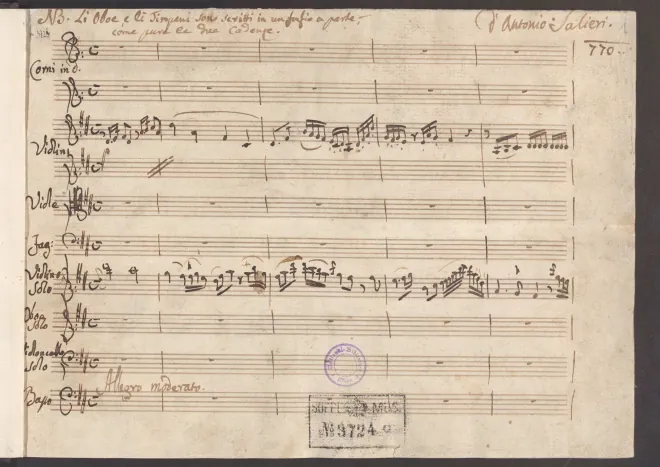 NB. Li Oboe e li Timpani sono scritti in un foglio a parte,
come pure le due Cadenze.
d'Antonio Salieri.
770.
Corni in d.
Violini
Viole
Fag:
Violino
Solo
Oboe
Solo
Violoncello
solo
Allegro moderato.
Basso
SUPPL. MUS.
№ 3724